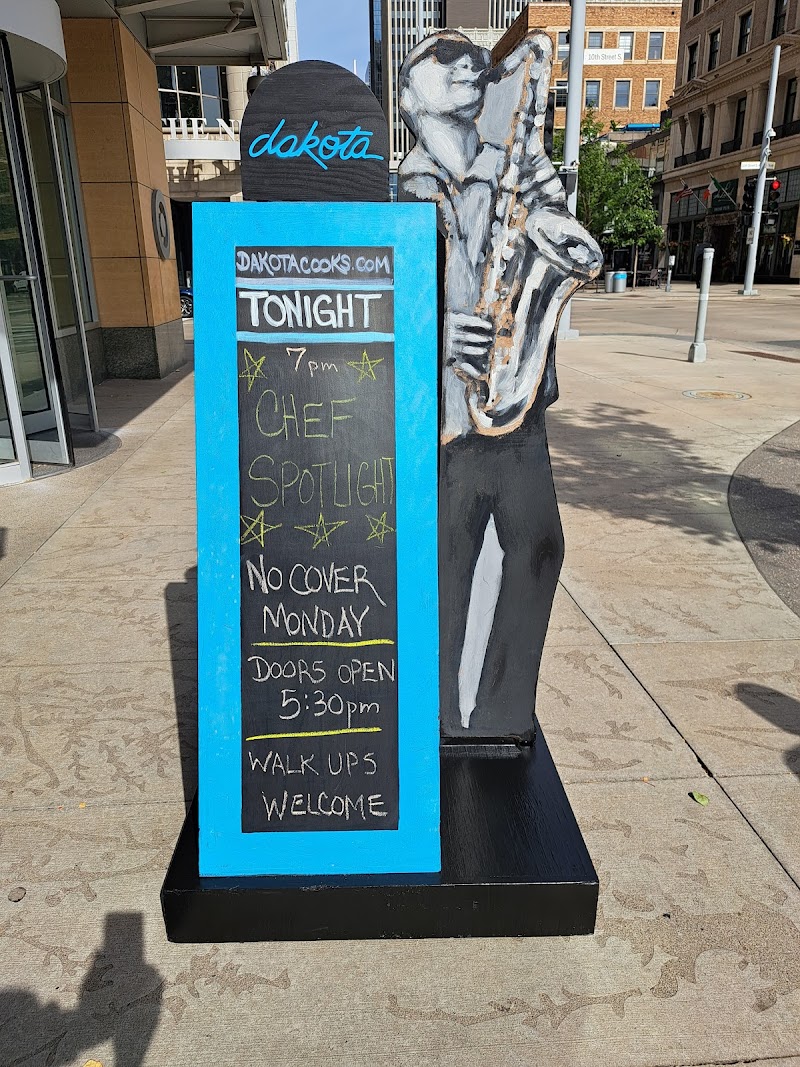 10th Street S
HEN
dakota
DAKOTACOOKS.COM
TONIGHT
7pm
CHEF
SPOTLIGHT
NO COVER
MONDAY
DOORS OPEN
5:30pm
WALK UPS
WELCOME